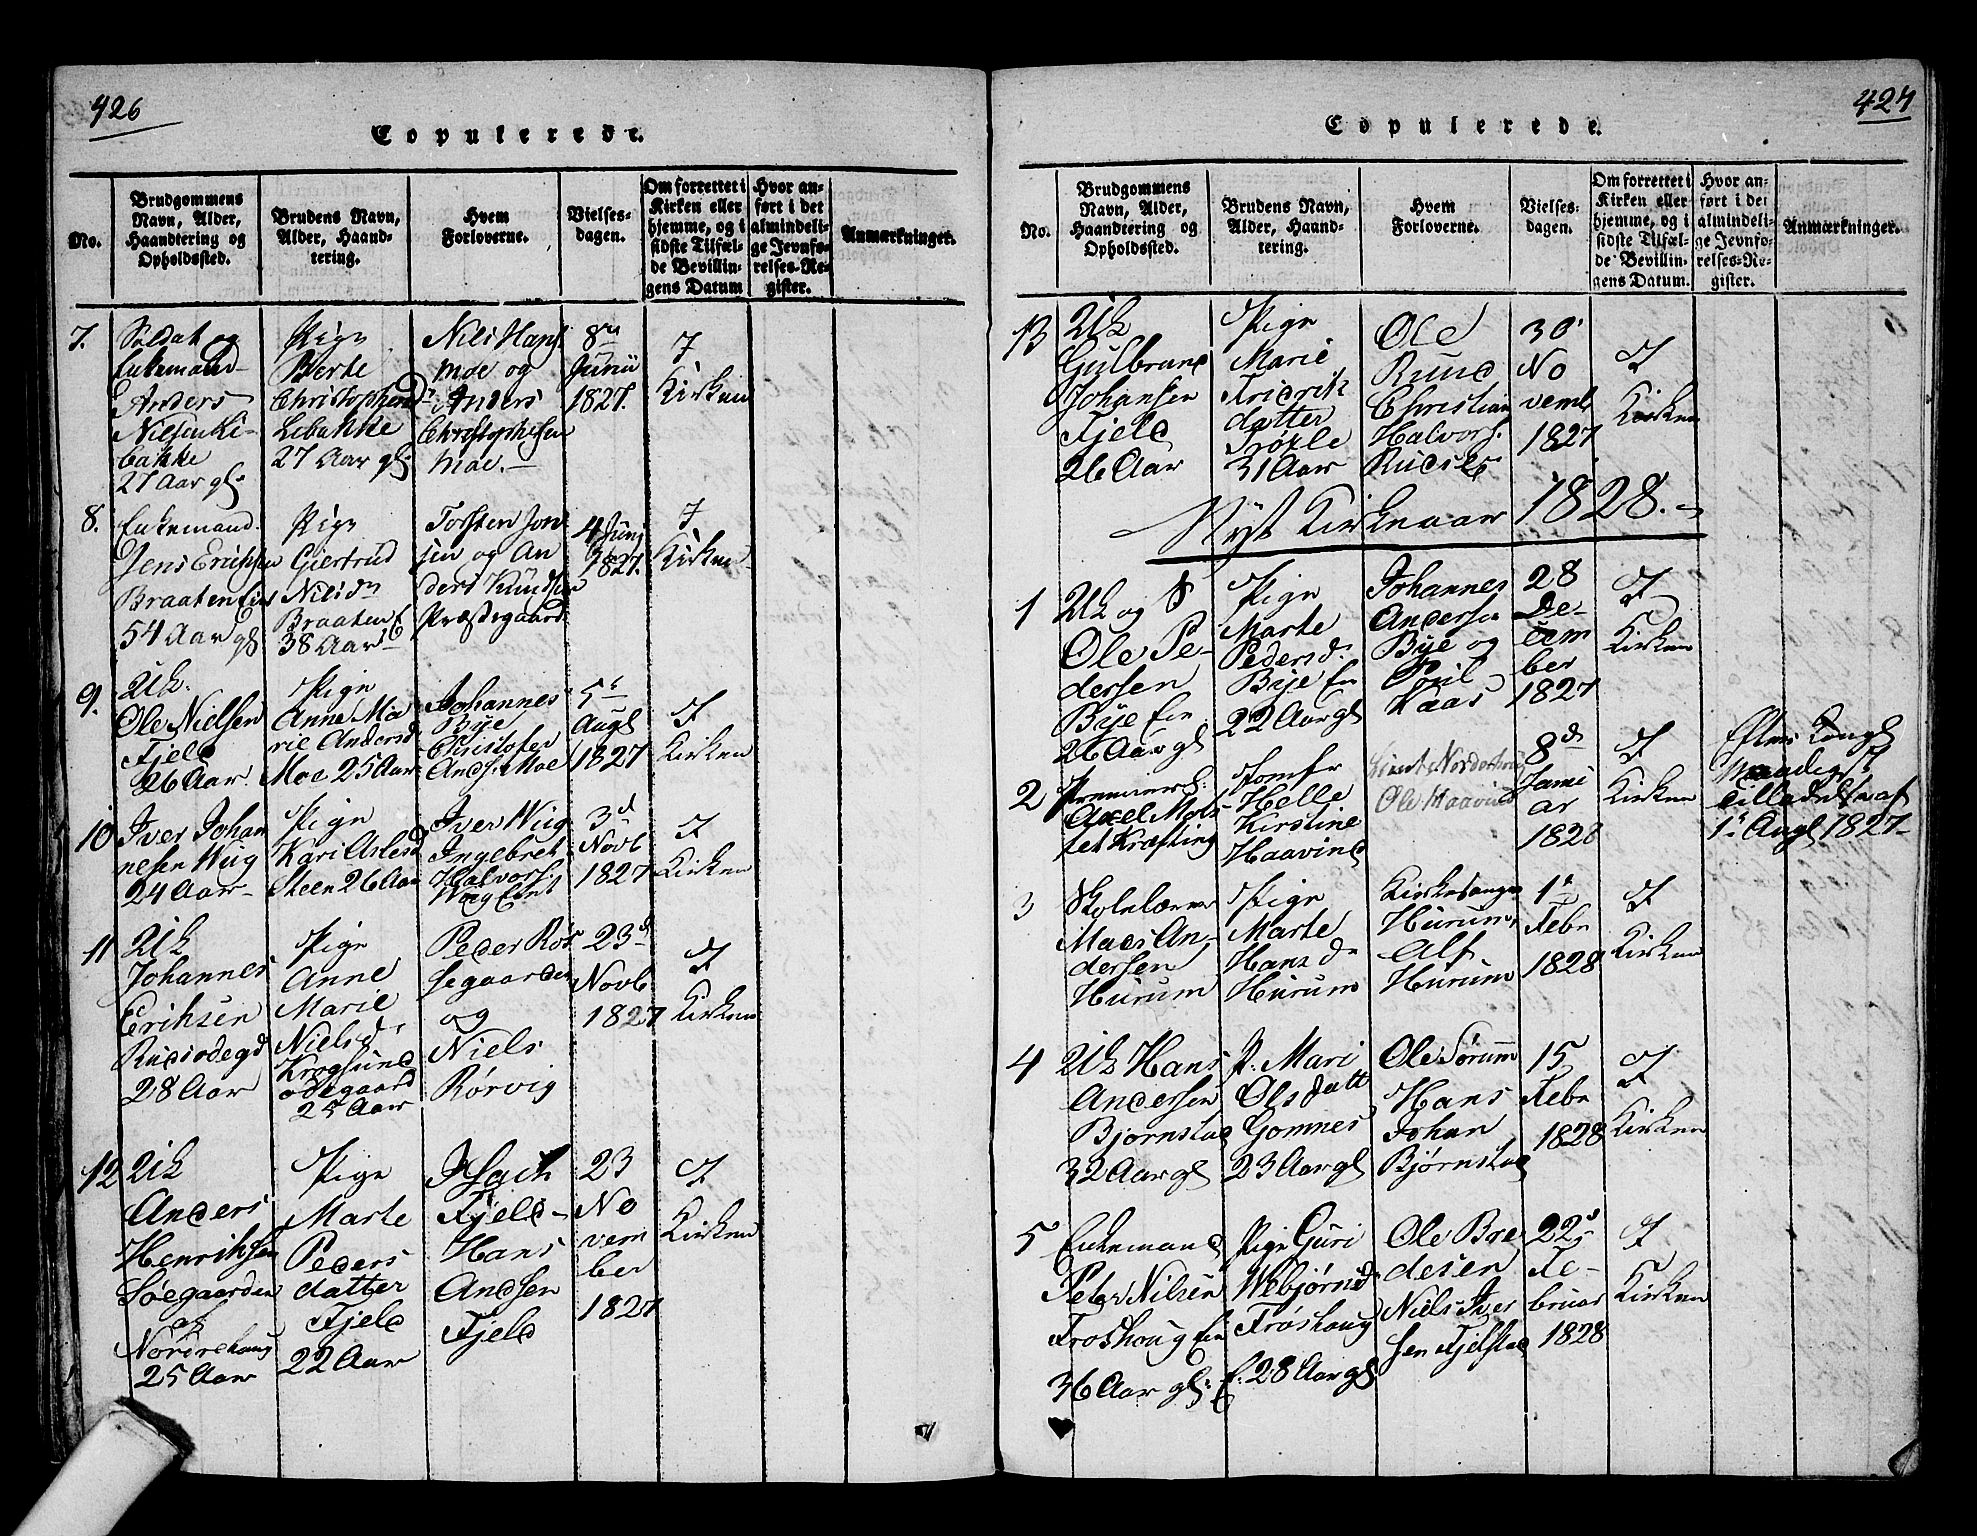 426
Copulerede.
No.
Brudgommens Navn, Alder, Haandtering og Opholdssted.
Brudens Navn, Alder, Haandtering.
Hvem Forloverne.
Vielsesdagen.
Om forrettet i Kirken eller hjemme, og i sidste Tilfælde Bevillingens Datum
Hvor anført i det almindelige Jevnførelses-Register.
Anmærkninger.
7.
Soldat og
Enkemand
Anders
Nilsen Li-
bakke
27 Aar gl.
Pige
Berte
Christophersd
Libakke
27 Aar gl.
Nils Hans
moe og
Anders
Christophersen
moe.
8de
Junii
1827.
I
Kirken
8.
Enkemand
Jens Erichsen
Braaten Eie
54 Aar gl
Pige
Giertrud
Nilsdr
Braaten E
38 Aar
Torsten Jon
sen og An
ders Knudsen
Præstegaard
4 Junj
1827.
I
Kirken
9.
Uk.
Ole Nielsen
Fjeld
26 Aar.
Pige
Anne Ma
rie Andersd
Moe 25 Aar
Johannes
Bye
Christofer
Ands. Moe
5te
Augt
1827
I
Kirken
10
Iver Johan
nesen Wiig
24 Aar
Pige
Kari Aslesd
Steen 26 Aar
Iver Wiig
Ingebret
Halvors.
Wiig Eiet
3d
Novb
1827
I
Kirken
11
Uk
Johannes
Erichsen
Rudsødegd
28 Aar
Pige
Anne
Marie
Nielsd.
Krogsund
ødegaard
25 Aar
Peder Røs
segaarden
og
Niels
Rørvig
23d
Novb
1827
I
Kirken
12
Uk
Anders
Henrichsen
Søegaarden
af
Norderhoug
25 Aar
Pige
Marte
Peders
datter
Fjeld
22 Aar
Isach
Fjeld
Hans
Andsen
Fjeld
23
No
vem
ber
1827
I
Kirken
427
Copulerede.
No.
Brudgommens Navn, Alder, Haandtering og Opholdssted.
Brudens Navn, Alder, Haandtering.
Hvem Forloverne.
Vielsesdagen.
Om forrettet i Kirken eller hjemme, og i sidste Tilfælde Bevillingens Datum.
Hvor anført i det almindelige Jevnførelses-Register.
Anmærkninger.
13
Uk
Gulbrand
Johansen
Fjeld
26 Aar
Pige
Marie
Fridrik
datter
31 Aar
Ole
Ruud
Christian
Halvors.
30
No
vemb
1827
I
Kirken
Nyt Kirkeaar 1828.
1
Uk og S
Ole Pe-
dersen
Bye Eie
26 Aar gl
Pige
Marte
Pedersd.
Bye Eie
22 Aar gl
Johannes
Andersen
Bye og
Poul
Kaas
28
De-
cem
ber
1827
I
Kirken
2
Premierl:
Axel Mols
tet Kræfting
Jomfr
Helle
Kirstine
Haavind
Lieut Norderhus
Ole Haavind
8d
Janu
ar
1828
I
Kirken
Efter Kongl
Tilladelse af
1te Augt 1827
3
Skolelærer
Mads An-
dersen
Hurum
Pige
Marte
Hansdr
Hurum
Kirkesanger
Hurum,
Alf
Hurum
1te
Febr
1828
I
Kirken
4
Uk Hans
Andersen
Bjørnstad
32 Aar gl
P. Mari
Olsdatt
Gomnes
23 Aar gl
Ole Sørum
Hans
Johan
Bjørnstad
15
Febr
1828
I
Kirken
5
Enkemand
Peter Nilsen
Froshoug Eie
36 Aar gl:
Pige Guri
Webjørnsd
Frøshoug
E. 28 Aar gl
Ole Bre
desen
Niels Iver
sen Fjelstad
22d
Fe-
bruar
1828
I
Kirken